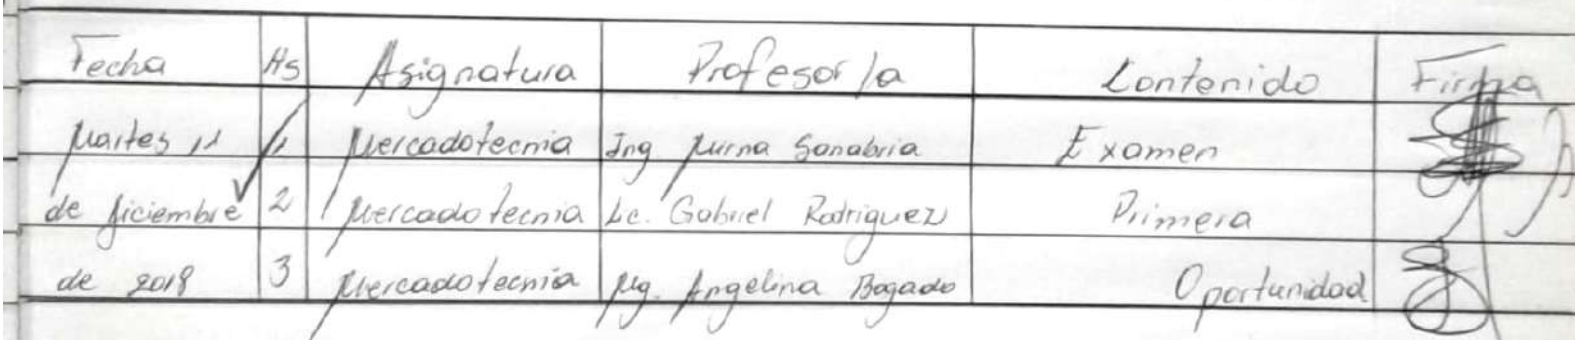 Fecha Hs Asignatura Profesor/a Contenido Firma
Martes 11 1 Mercadotecnia Ing. Mirna Sanabria Examen
de diciembre 2 Mercadotecnia Lc. Gabriel Rodriguez Primera
de 2018 3 Mercadotecnia Mg. Angelina Bogado Oportunidad